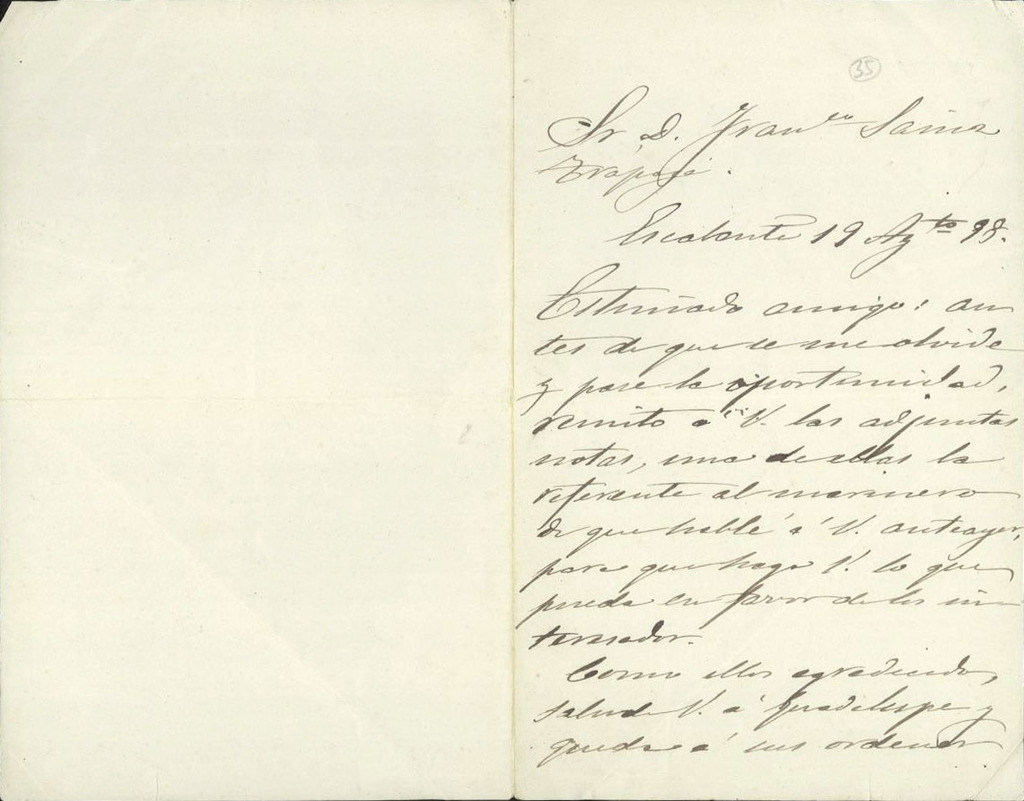 35
Sr. D. Franco Sainz
Trápaga.
Escalante 19 Agto 98.
Estimado amigo: an
tes de que se me olvide
y pase la oportunidad,
remito á V. las adjuntas
notas, una de ellas la
referente al marinero
de que hablé á V. anteayer,
para que haga V. lo que
pueda en favor de los in
teresados.
Como ellos agradecido,
saluda V. á Guadalupe y
queda á sus ordenes